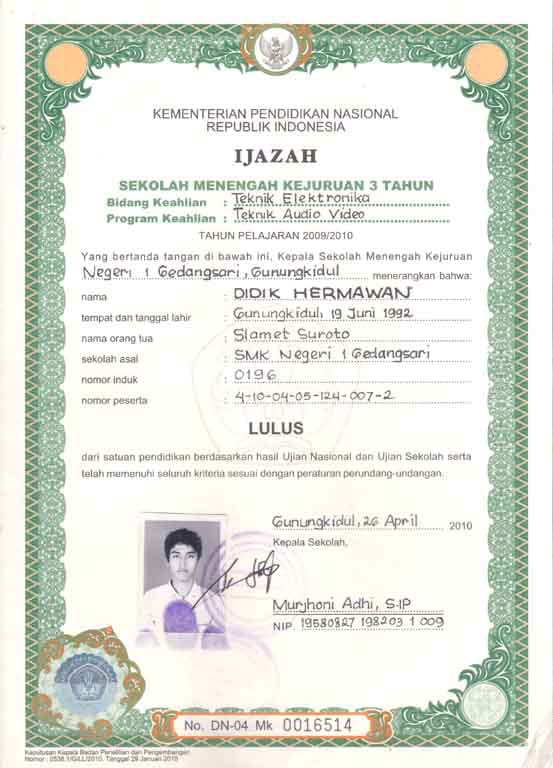 KEMENTERIAN PENDIDIKAN NASIONAL
REPUBLIK INDONESIA
IJAZAH
SEKOLAH MENENGAH KEJURUAN 3 TAHUN
Bidang Keahlian : Teknik Elektronika
Program Keahlian : Teknik Audio Video
TAHUN PELAJARAN 2009/2010
Yang bertanda tangan di bawah ini, Kepala Sekolah Menengah Kejuruan
Negeri 1 Gedangsari, Gunungkidul menerangkan bahwa:
nama : DIDIK HERMAWAN
tempat dan tanggal lahir : Gunungkidul, 19 Juni 1992
nama orang tua : Slamet Suroto
sekolah asal : SMK Negeri 1 Gedangsari
nomor induk : 0196
nomor peserta : 4-10-04-05-124-007-2
LULUS
dari satuan pendidikan berdasarkan hasil Ujian Nasional dan Ujian Sekolah serta
telah memenuhi seluruh kriteria sesuai dengan peraturan perundang-undangan.
Gunungkidul, 26 April 2010
Kepala Sekolah,
Murjhoni Adhi, S.IP
NIP. 19580827 198203 1 009
No. DN-04 Mk 0016514
Keputusan Kepala Badan Penelitian dan Pengembangan
Nomor : 0538.1/G/LL/2010, Tanggal 29 Januari 2010